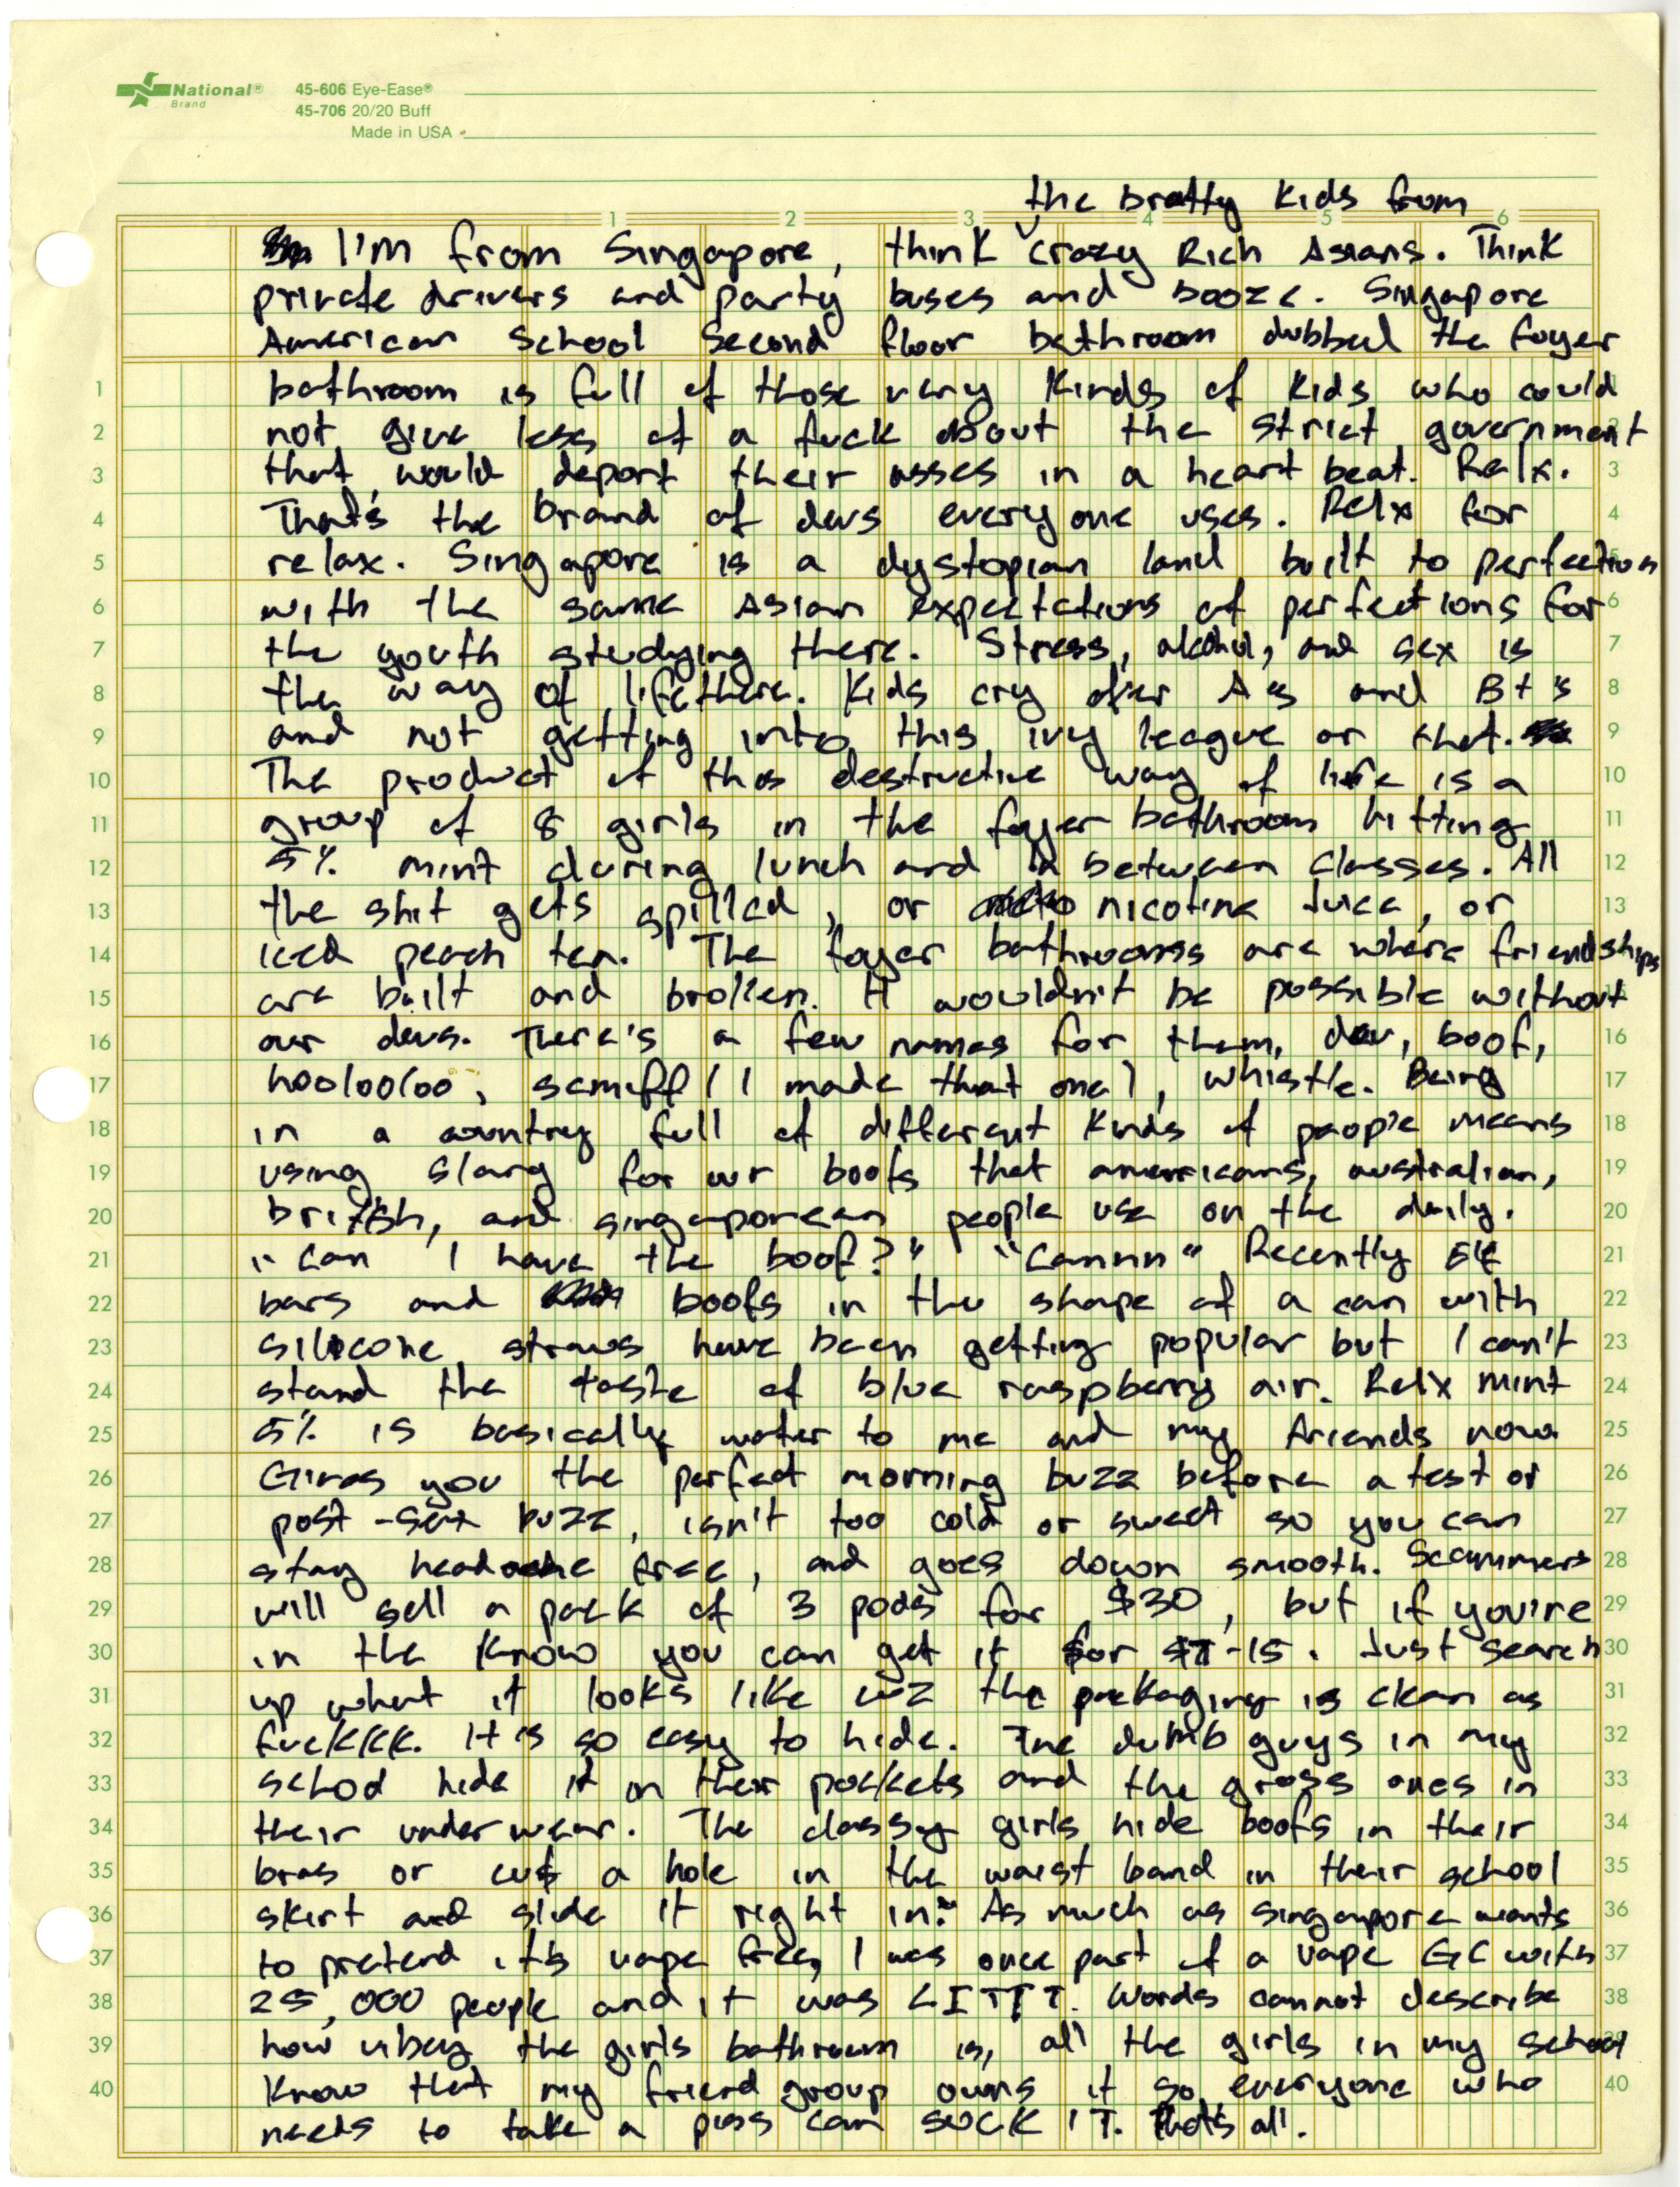 National®
Brand
45-606 Eye-Ease®
45-706 20/20 Buff
Made in USA
the bratty kids from
1 2 3 4 5 6
I'm from Singapore, think crazy Rich Asians. Think
private drivers and party buses and booze. Singapore
American School Second floor bathroom dubbed the foyer
1 bathroom is full of those very kinds of kids who could
2 not give less of a fuck about the strict government 2
3 that would deport their asses in a heart beat. Relx. 3
4 That's the brand of devs everyone uses. Relx for 4
5 relax. Singapore is a dystopian land built to perfection 5
6 with the same Asian expectations of perfections for 6
7 the youth studying there. Stress, alcohol, and sex is 7
8 the way of life there. Kids cry over A's and B+'s 8
9 and not getting into this ivy league or that. 9
10 The product of this destructive way of life is a 10
11 group of 8 girls in the foyer bathroom hitting 11
12 5% mint during lunch and in between classes. All 12
13 the shit gets spilled, or nicotine juice, or 13
14 iced peach tea. The foyer bathrooms are where friendships
15 are built and broken. It wouldn't be possible without
16 our devs. There's a few names for them, dev, boof, 16
17 hoolooloo, semiff (I made that one), whistle. Being 17
18 in a country full of different kinds of people means 18
19 using slang for our boofs that amerricans, australian, 19
20 british, and singaporean people use on the daily. 20
21 "Can I have the boof?" "Cannnn" Recently Elf 21
22 bars and boofs in the shape of a can with 22
23 silicone straws have been getting popular but I can't 23
24 stand the taste of blue raspberry air. Relx mint 24
25 5% is basically water to me and my friends now 25
26 Gives you the perfect morning buzz before a test or 26
27 post-sex buzz, isn't too cold or sweet so you can 27
28 stay headache free, and goes down smooth. Scammers 28
29 will sell a pack of 3 pods for $30, but if you're 29
30 in the know you can get it for $7-15. Just search 30
31 up what it looks like cuz the packaging is clean as 31
32 fuckkkk. It is so easy to hide. The dumb guys in my 32
33 school hide it in their pockets and the gross ones in 33
34 their underwear. The classy girls hide boofs in their 34
35 bras or cut a hole in the waist band in their school 35
36 skirt and slide it right in. As much as singapore wants 36
37 to pretend it's vape free, I was once part of a vape GC with 37
38 25,000 people and it was LITTT. Words cannot describe 38
39 how vibey the girls bathroom is, all the girls in my school
40 know that my friend group owns it so everyone who 40
needs to take a piss can SUCK IT. That's all.